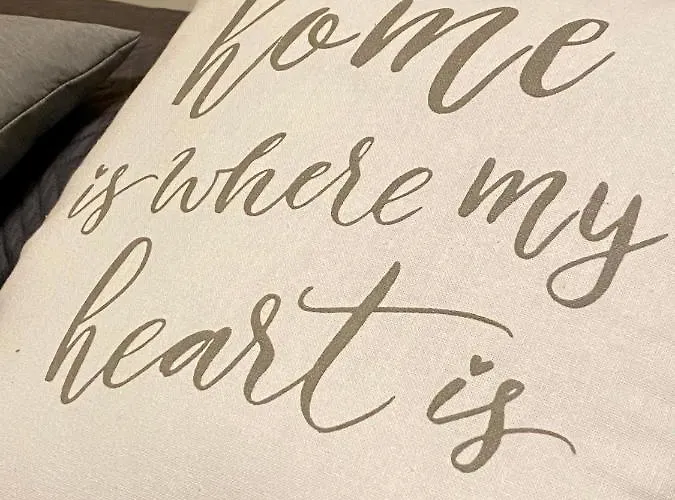 home
is where my
heart is